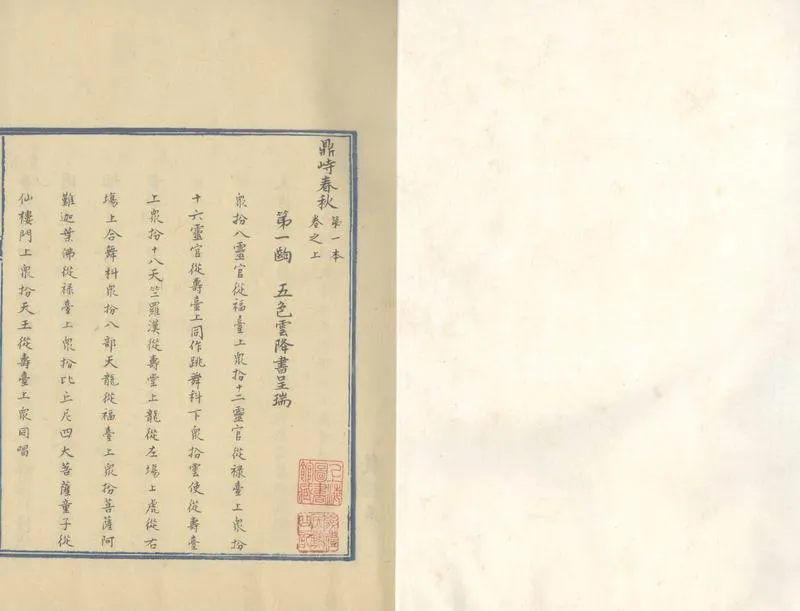 鼎峙春秋
第一本
卷之上
第一齣 五色雲降書呈瑞
衆扮八靈官從福臺上衆扮十二靈官從祿臺上衆扮
十六靈官從壽臺上同作跳舞科下衆扮雲使從壽臺
上衆扮十八天竺羅漢從壽堂上龍從左場上虎從右
場上合舞科衆扮八部天龍從福臺上衆扮菩薩阿
難迦葉佛從祿臺上衆扮比丘尼四大菩薩童子從
仙樓門上衆扮天王從壽臺上衆同唱